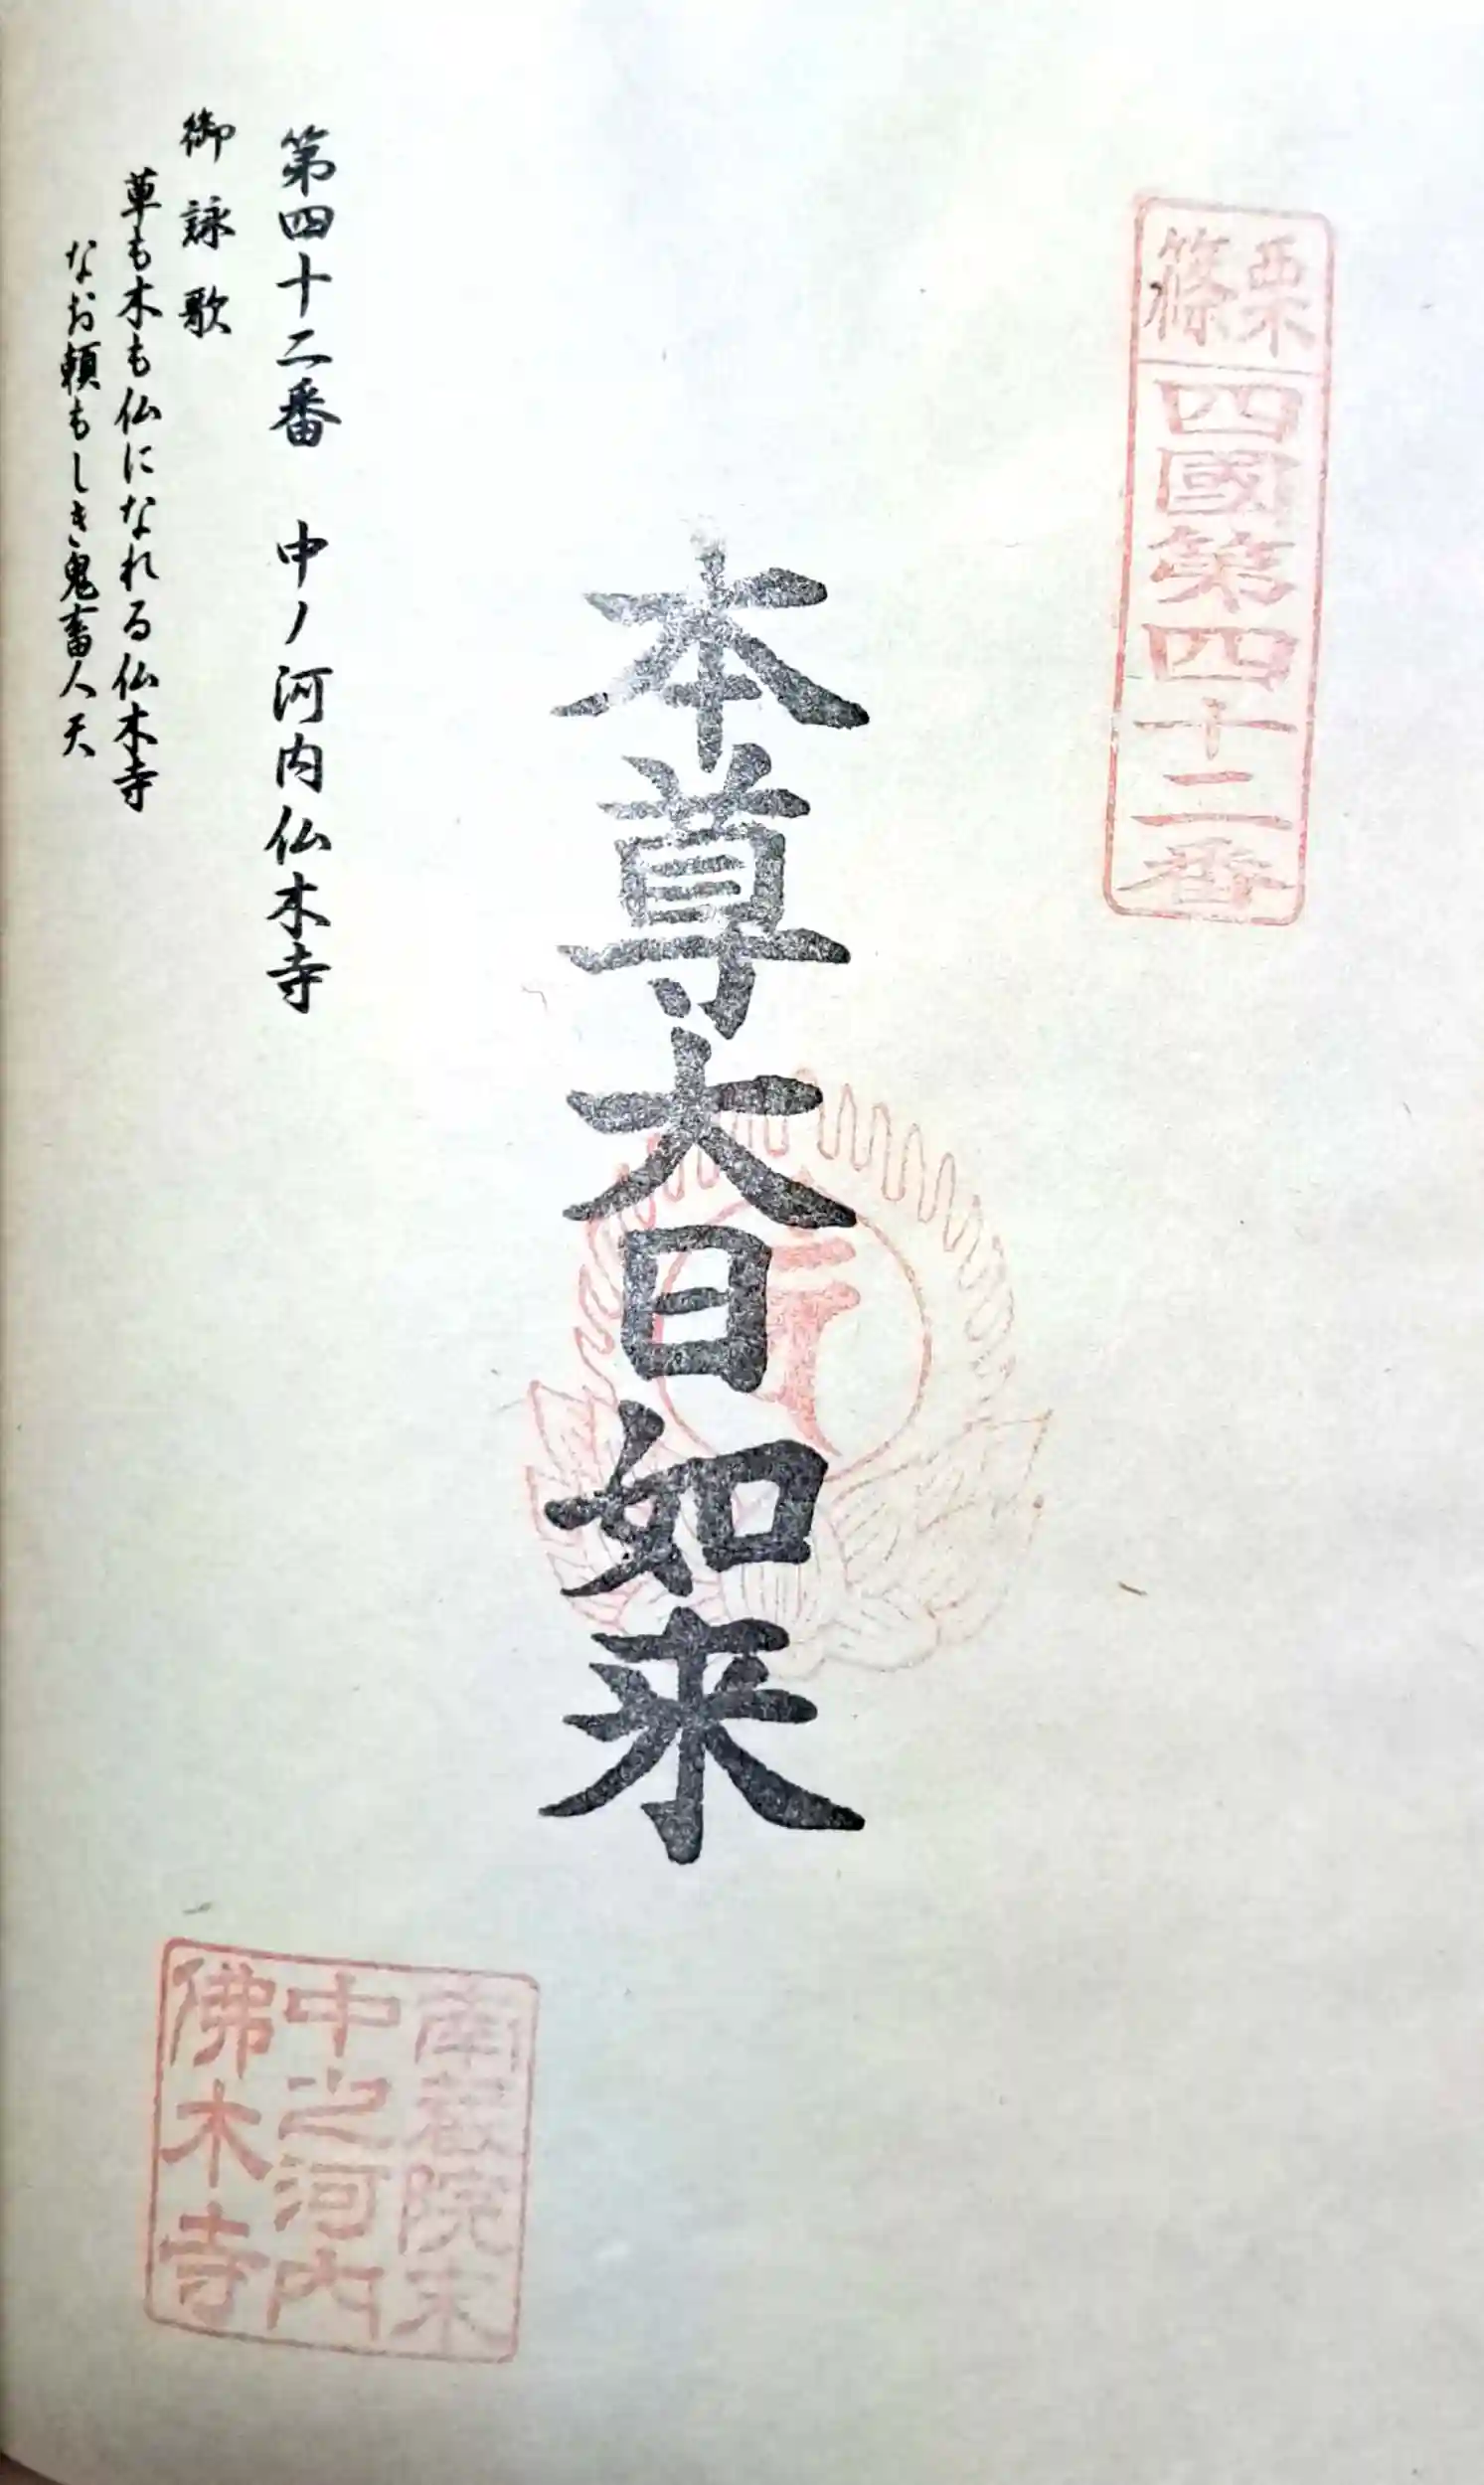 篠栗
四國第四十二番
本尊大日如来
第四十二番　中ノ河内仏木寺
御詠歌
草も木も仏になれる仏木寺
なお頼もしき鬼畜人天
南蔵院末
中之河内
佛木寺